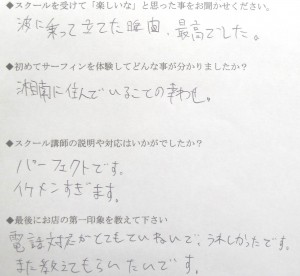 ◆スクールを受けて「楽しいな」と思った事をお聞かせください。
波に乗って立てた瞬間、最高でした。
◆初めてサーフィンを体験してどんな事が分かりましたか？
湘南に住んでいることの幸せ。
◆スクール講師の説明や対応はいかがでしたか？
パーフェクトです。
イケメンすぎます。
◆最後にお店の第一印象を教えて下さい
電話対応がとてもていねいで、うれしかったです。
また教えてもらいたいです。